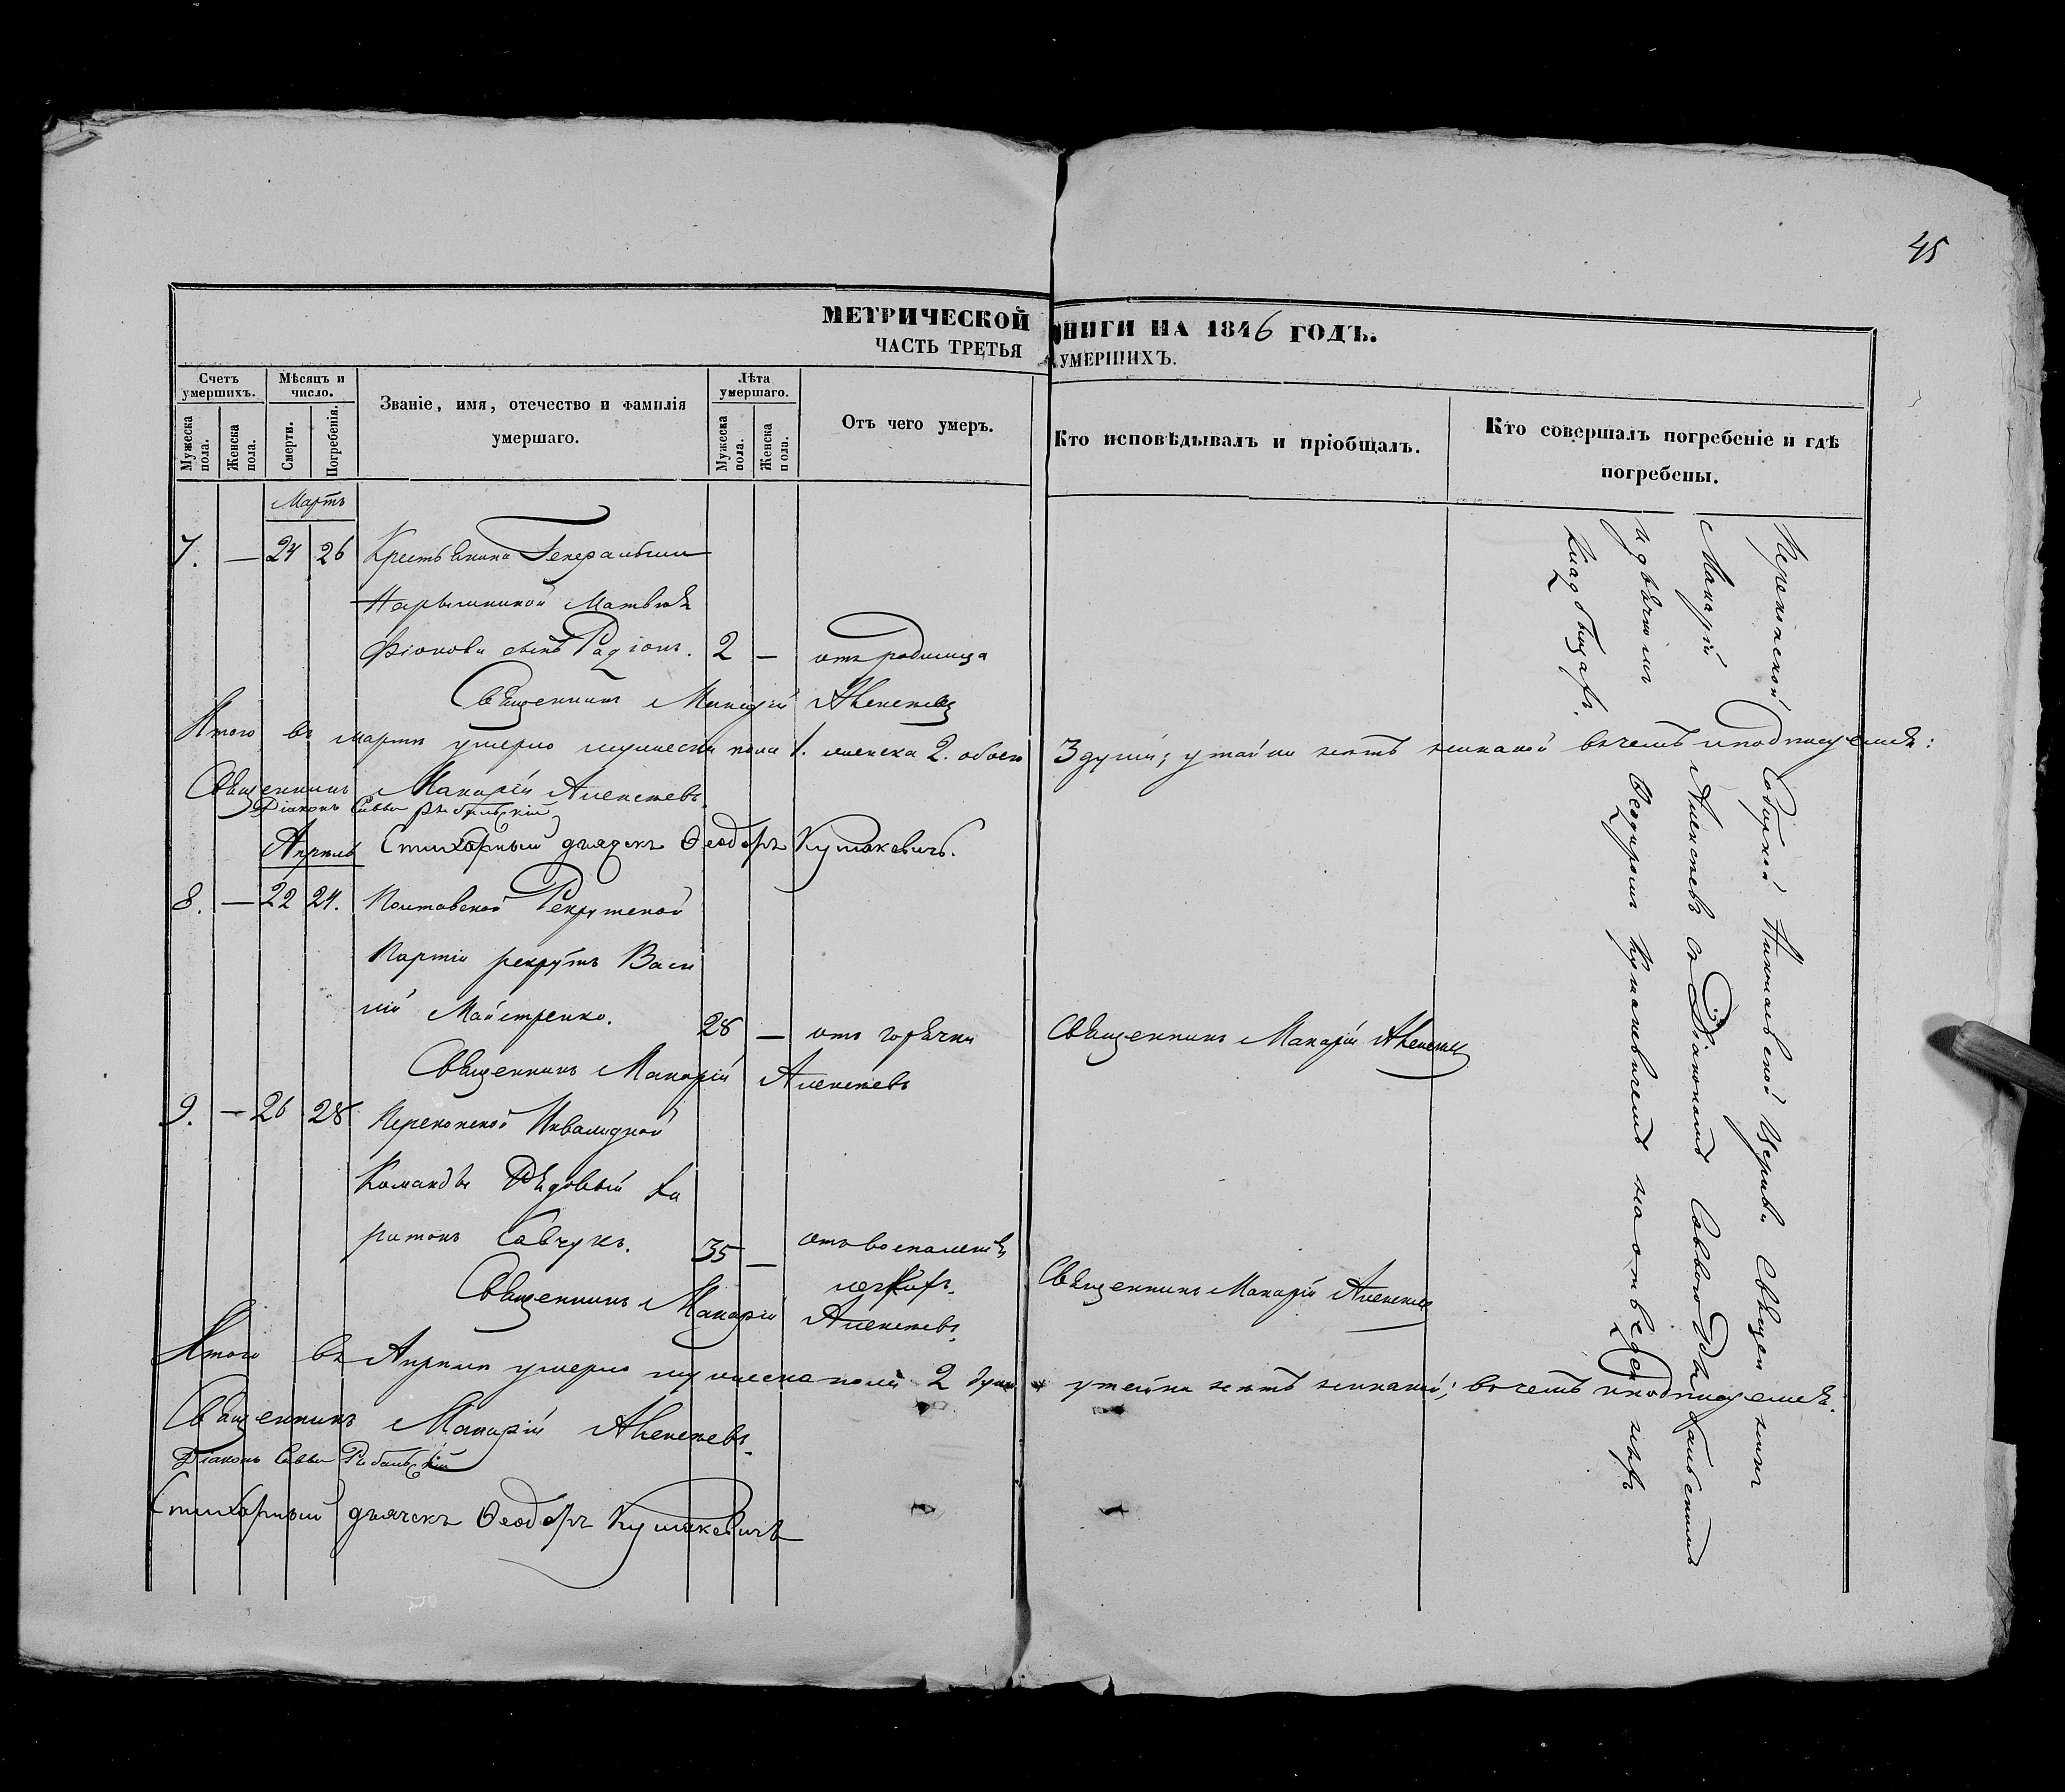 45
МЕТРИЧЕСКОЙ КНИГИ НА 1846 ГОДЪ.
ЧАСТЬ ТРЕТЬЯ УМЕРШИХЪ.
Счетъ умершихъ.
Мужеска пола.
Женска пола.
Мѣсяцъ и число.
Смерти.
Погребенія.
Званіе, имя, отечество и фамилія умершаго.
Лѣта умершаго.
Мужеска пола.
Женска пола.
Отъ чего умеръ.
Кто исповѣдывалъ и пріобщалъ.
Кто совершалъ погребеніе и гдѣ погребены.
Мартъ
7. — 24 26 Крестьянина Генеральши
Нарышкиной Матвѣя
сынъ Радіонъ. 2 — отъ родимца
Священникъ Макарій Алексѣевъ
Итого въ мартѣ умерло мужеска пола 1. женска 2. обоего 3 души; утайки нѣтъ никакой въ чемъ и подписуемся:
Священникъ Макарій Алексѣевъ
Діаконъ Савва Рыбальскій
Стихарный дьячекъ Ѳеодоръ Кушакевичъ.
Апрѣль
8. — 22 24. Полтавской Рекрутской
Партіи рекрутъ Васи
лій Майстренко. 28 — отъ горячки Священникъ Макарій Алексѣевъ
Священникъ Макарій Алексѣевъ
9. — 26 28 Перекопской Инвалидной
Команды Рядовый Ха
ритонъ Савчукъ. 35 — отъ воспаленія
легкихъ. Священникъ Макарій Алексѣевъ
Священникъ Макарій Алексѣевъ.
Итого въ Апрѣлѣ умерло мужеска пола 2 души утайки нѣтъ никакой; въ чемъ и подписуемся.
Священникъ Макарій Алексѣевъ.
Діаконъ Савва Рыбальскій
Стихарный дьячекъ Ѳеодоръ Кушакевичъ
Перекопской Соборной Николаевской Церкви Священникъ
Макарій Алексѣевъ съ Діакономъ Саввою Рыбальскимъ
и дьячкомъ Ѳеодоромъ Кушакевичемъ на отведенномъ
кладбищѣ.